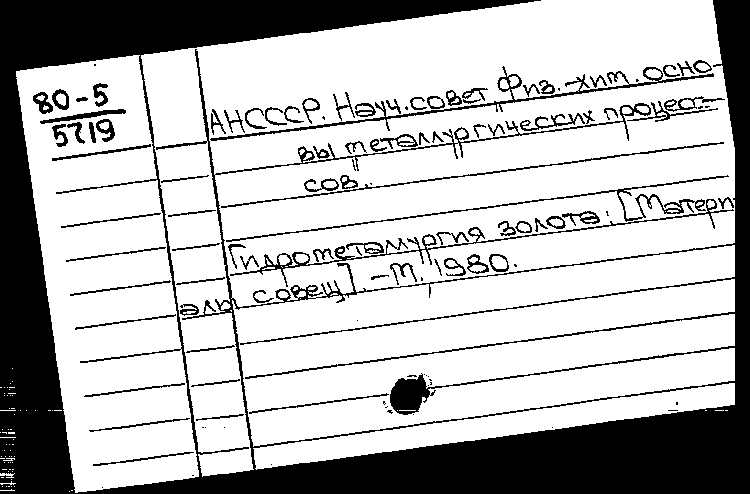 80-5
5719
АНСССР. Науч. совет „Физ.-хим. осно-
вы металлургических процес-
сов".
Гидрометаллургия золота: [Матери
алы совещ]. - М., 1980.